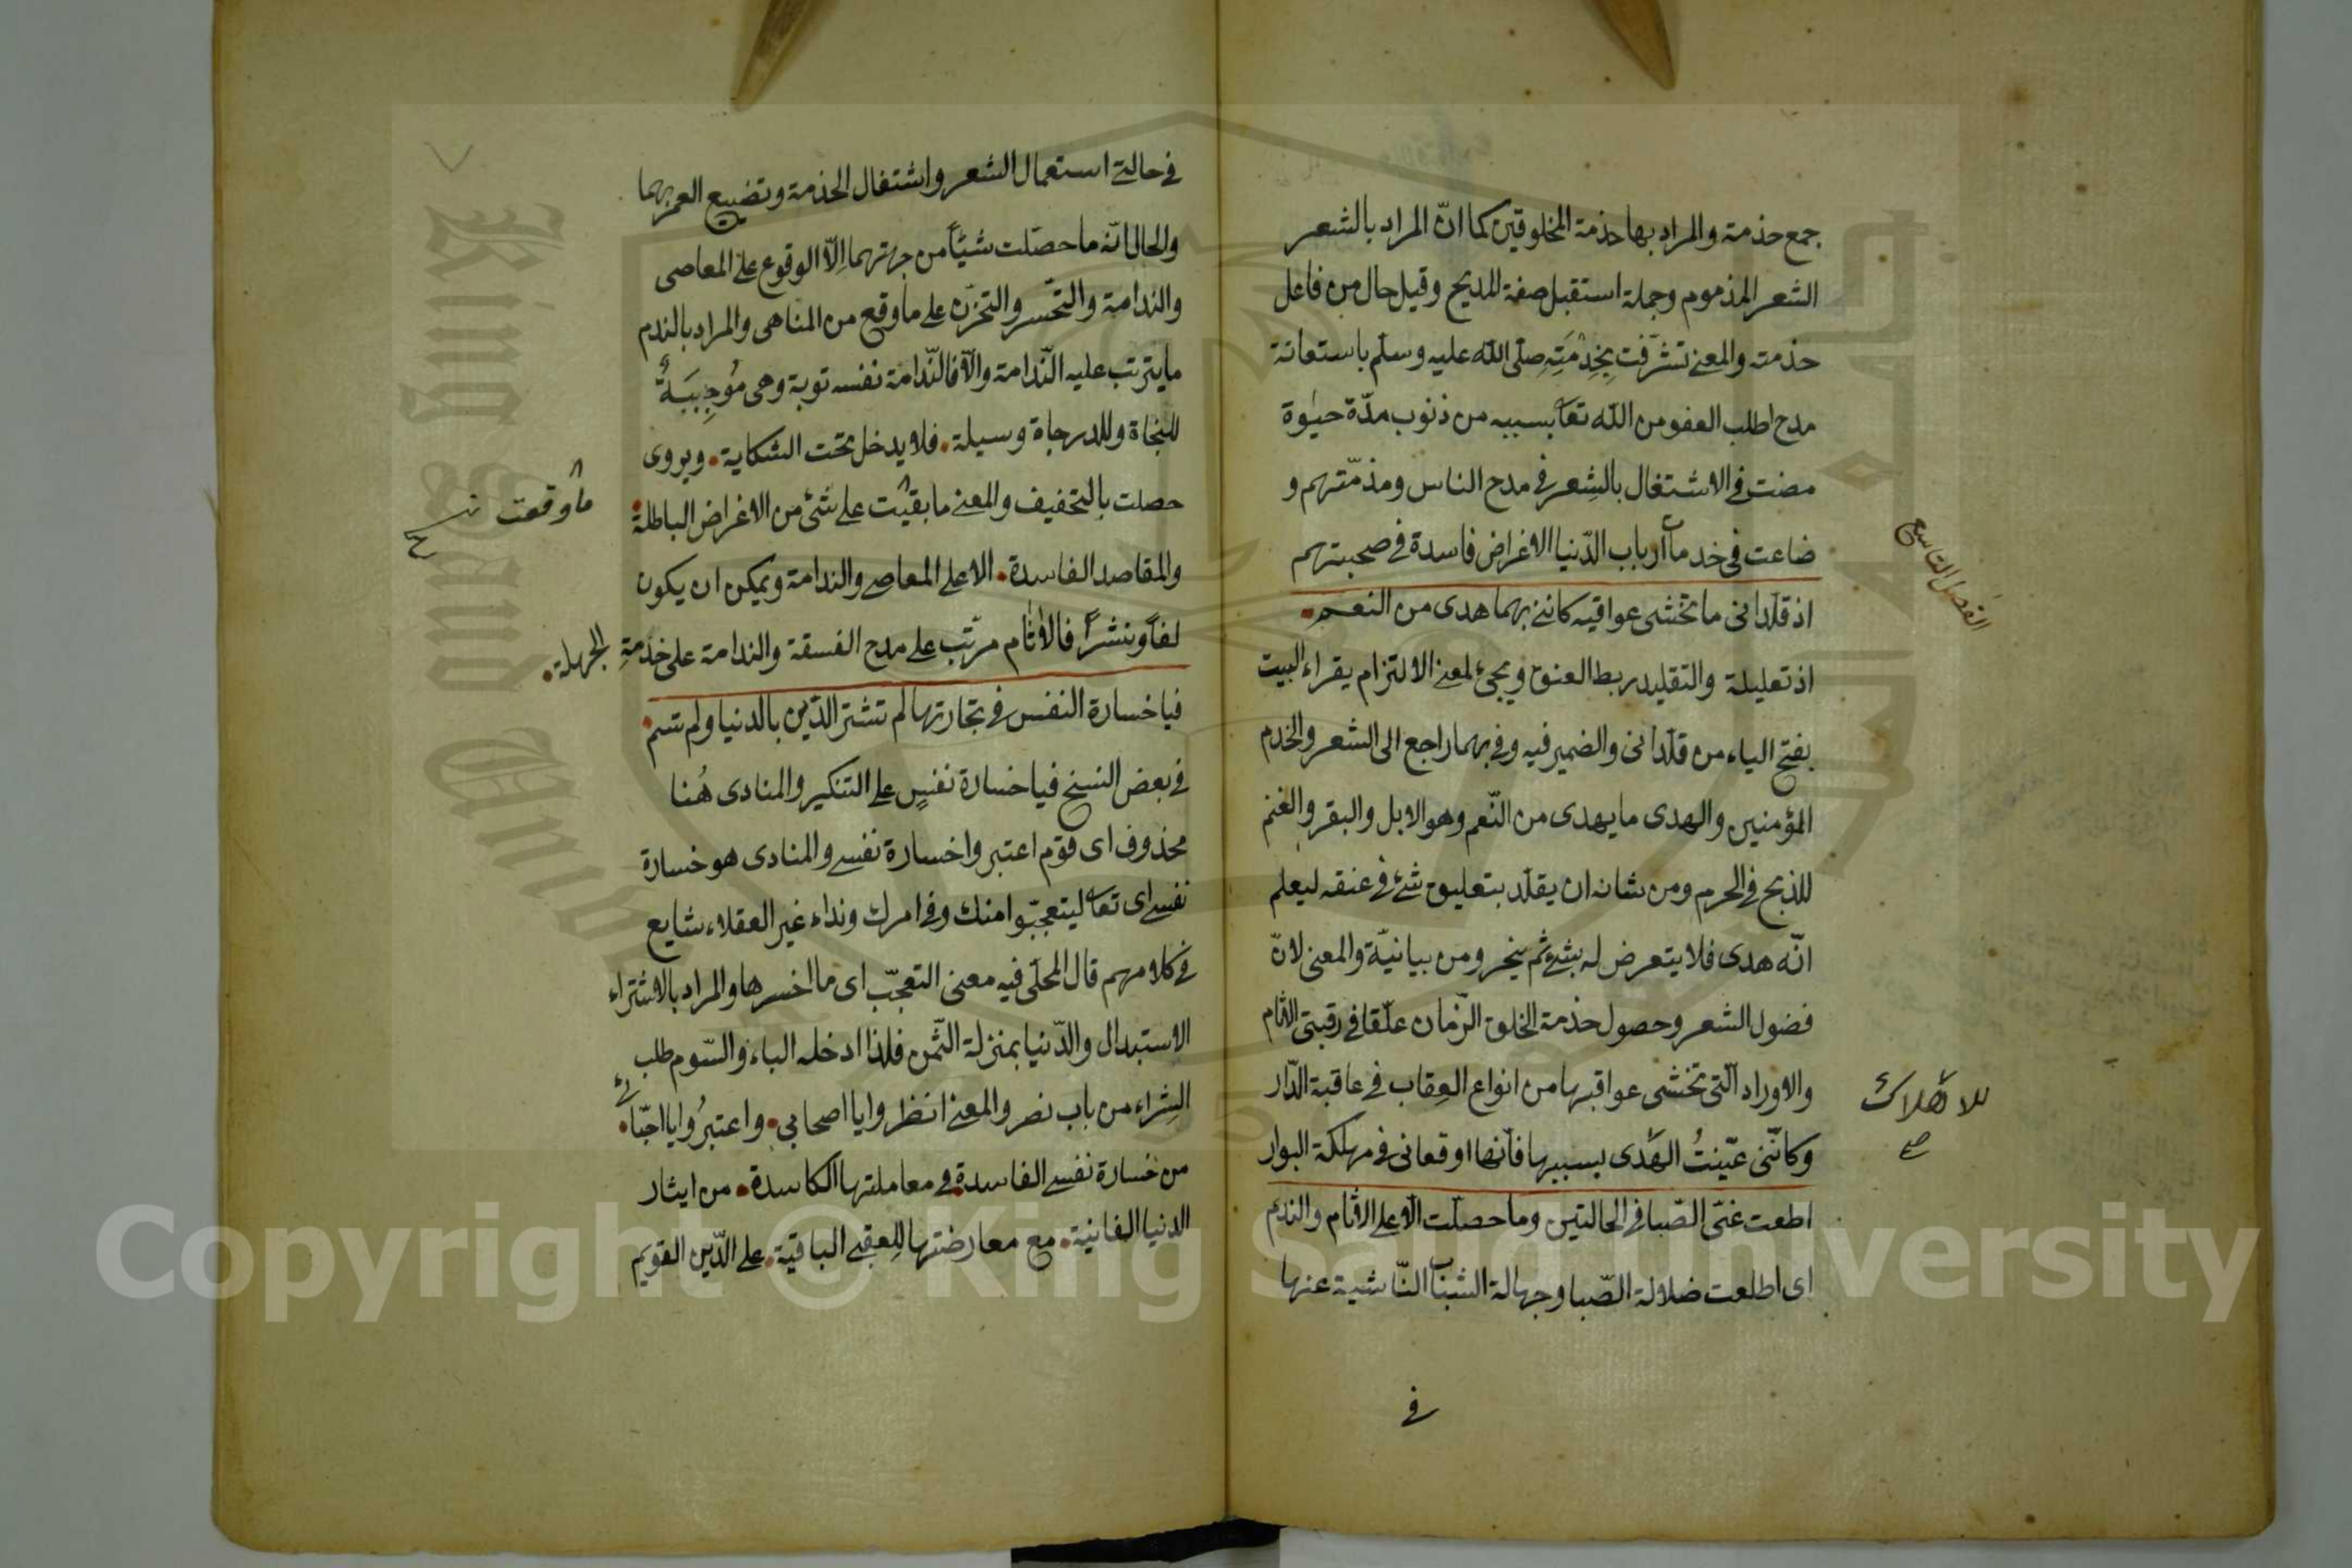 جمع حذمة والمراد بها حذمة المخلوقين كما انّ المراد بالشعر
الشعر المذموم وجملة استقبل صفة المديح وقيل حال من فاعل
حذمته والمعنى تشرّفت بِخِدْمَتِهِ صلّى اللّه عليه وسلم باستعانة
مدح اطلب العفو من اللّه تعا بسببه من ذنوب مدّة حيٰوة
مضت فى الاشتغال بالشِعر فى مدح الناس ومذمّتهم و
ضاعت فى خدمات ارباب الدّنيا الاغراض فاسدة فى صحبتهم
الفصل التاسع
اذ قلّدانى ما تخشى عواقبه كاننى بهما هدى من النعم
اذ تعليلة والتقليد ربط العنق ويجئ لمعنى الالتزام يقراء البيت
بفتح الياء من قلّدانى والضمير فيه وفى بهما راجع الى الشعر والخدم
المؤمنين والهدى ما يهدى من النّعم وهو الابل والبقر والغنم
للذبح فى الحرم ومن شانه ان يقلّد بتعليق شئ فى عنقه ليعلم
انّه هدى فلا يتعرض له بشئ ثم ينحر ومن بيانيّة والمعنى لانّ
فضول الشعر وحصول خذمة الخلق الزّمان علّقا فى رقبتى الاثام
والاوراد الّتى تخشى عواقبها من انواع العِقاب فى عاقبة الدّار
للاهلاك
صح
وكانّنى عيّنتُ الهَدى بسببها فانّها اوقعانى فى مهلكة البوار
اطعت غىّ الصّبا فى الحالتين وما حصلّت الّا على الاثام والندم
اى اطلعت ضلالة الصّبا وجهالة الشباب النّاشية عنها
فى
فى حالتى استعمال الشعر واشتغال الخذمة وتضييع العمر بهما
والحال انّه ما حصّلت شيئًا من جهتهما اِلّا الوقوع على المعاصى
والندامة والتحّسر والتحزّن على ما وقع من المناهى والمراد بالندم
ما يترتب عليه النّدامة والّا فالنّدامة نفسه توبة وهى مُوجِبَةٌ
للنجاة وللدرجاة وسيلة. فلا يدخل تحت الشكاية. ويروى
حصلت بالتخفيف والمعنى ما بقيت على شئ من الاغراض الباطلة
ما وقعت
والمقاصد الفاسدة. الا على المعاصى والندامة ويمكن ان يكون
لفًا ونشرًا فالاثام مرتّب على مدح الفسقة والندامة على خذمةِ الجهلة.
فيا خسارة النفس فى تجارتها لم تشتر الدّين بالدنيا ولم تسم
فى بعض النسخ فيا خسارة نفسٍ على التنكير والمنادى هُنا
محذوف اى قوم اعتبروا خسارة نفسى والمنادى هو خسارة
نفسى اى تعالى ليتعجبّوا منك وفى امرك ونداء غير العقلاء شايع
فى كلامهم قال المحلّى فيه معنى التعجّب اى ما اخسرها والمراد بالاشتراء
الاستبدال والدّنيا بمنزلة الثّمن فلذا ادخله الباء والسّوم طلب
الشراء من باب نصر والمعنى انظروا يا اصحابى. واعتبرُوا يا احبّائى.
من خسارة نفسى الفاسدة فى معاملتها الكاسدة. من ايثار
الدنيا الفانية. مع معارضتها للِعقبى الباقية. على الدّين القويم
Copyright © King Saud University
King Saud University